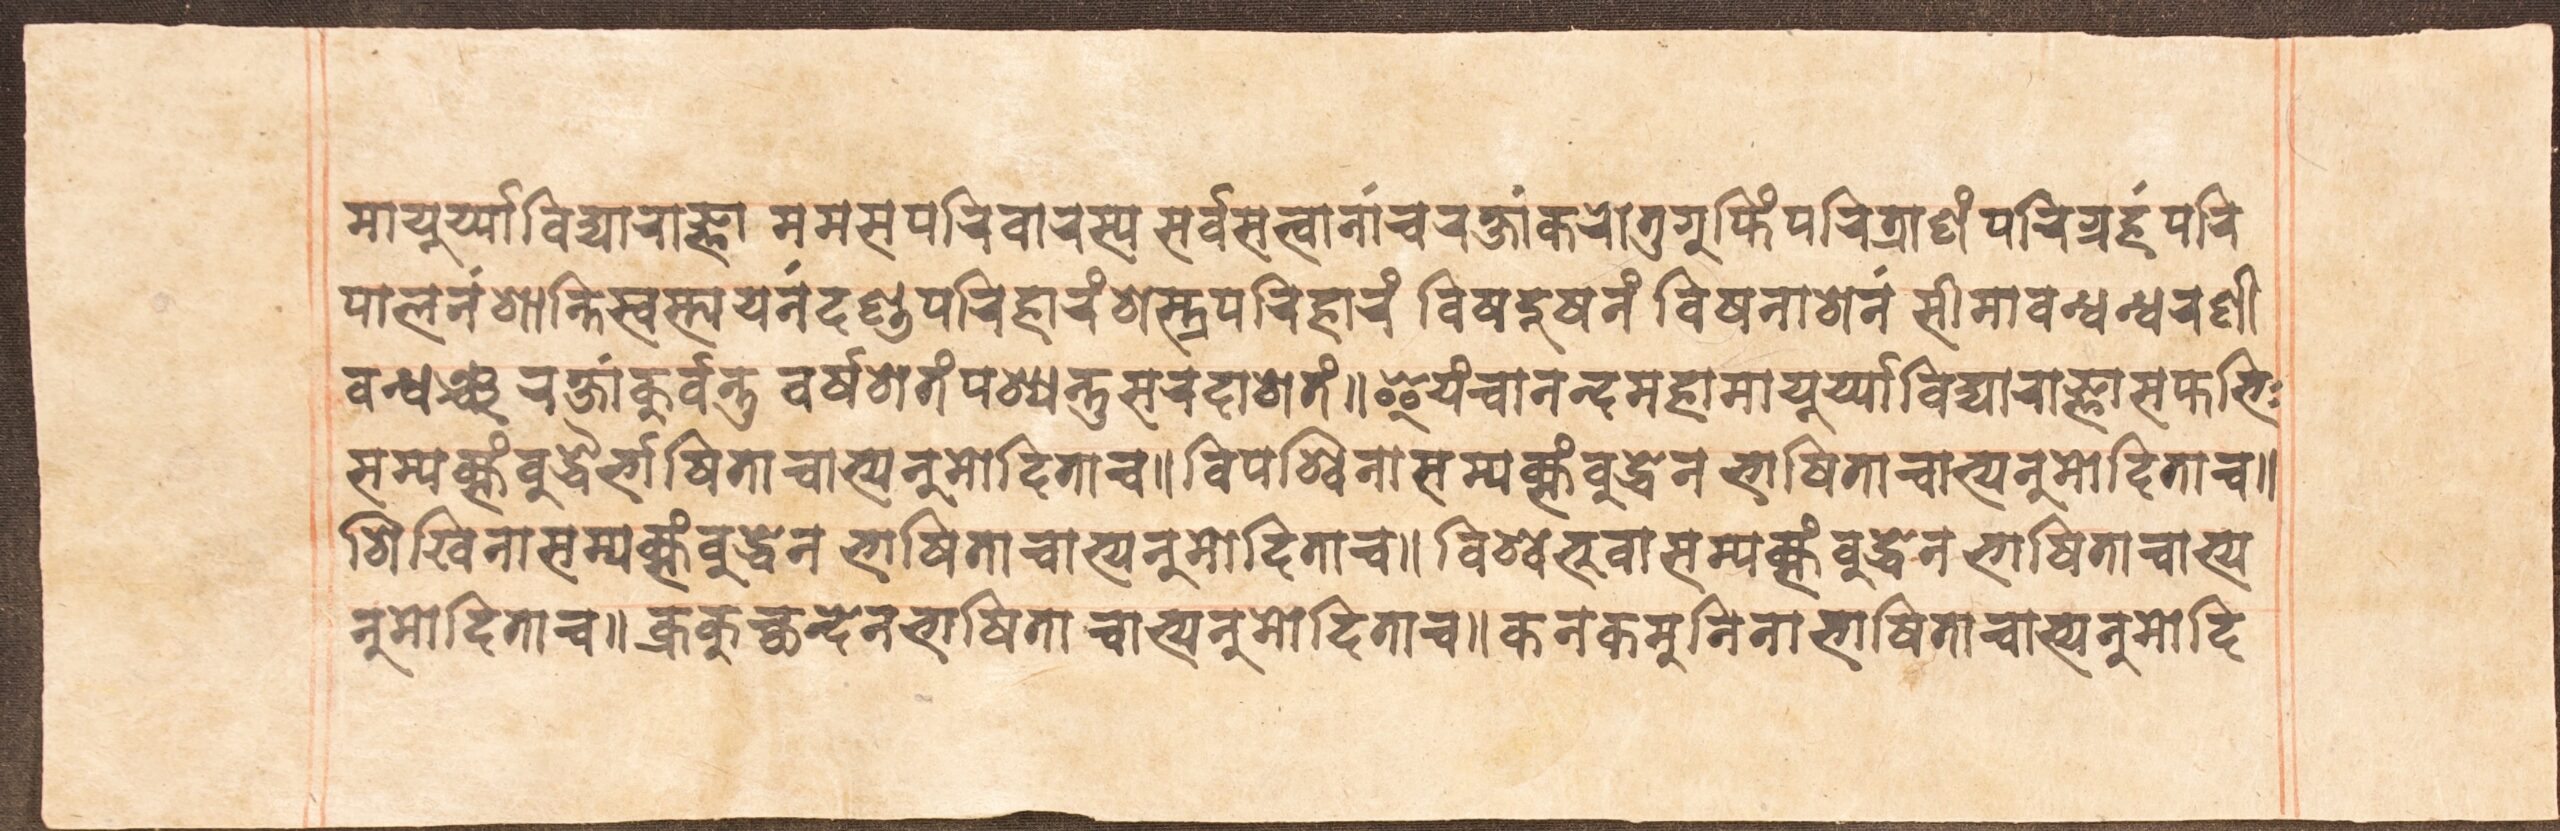 मायुर्य्याविद्याराज्ञा ममसपरिवारस्य सर्वसत्वानांचरक्षांकरोतुगुप्तिंपरित्राणंपरिग्रहंपरि
पालनंशान्तिस्वस्त्ययनंदण्डपरिहारंशस्त्रपरिहारं विषदूषनं विषनाशनं सीमावन्धन्धरणी
वन्धञ्च रक्षांकुर्वन्तु वर्षशतंपश्यन्तुसरदाशतं॥इयंचानन्दमहामायुर्य्याविद्याराज्ञासप्तभिः
सम्यक्संवुद्धैर्भाषिताचाभ्यनुमोदिताच॥विपश्विनासम्यक्संवुद्धेन भाषिताचाभ्यनुमोदिताच॥
शिखिनासम्यक्संवुद्धेन भाषिताचाभ्यनुमोदिताच॥ विश्वभूवासम्यक्संवुद्धेन भाषिताचाभ्य
नुमोदिताच॥ क्रकुच्छन्देनभाषिता चाभ्यनुमोदिताच॥कनकमुनिनाभाषिताचाभ्यनुमोदि